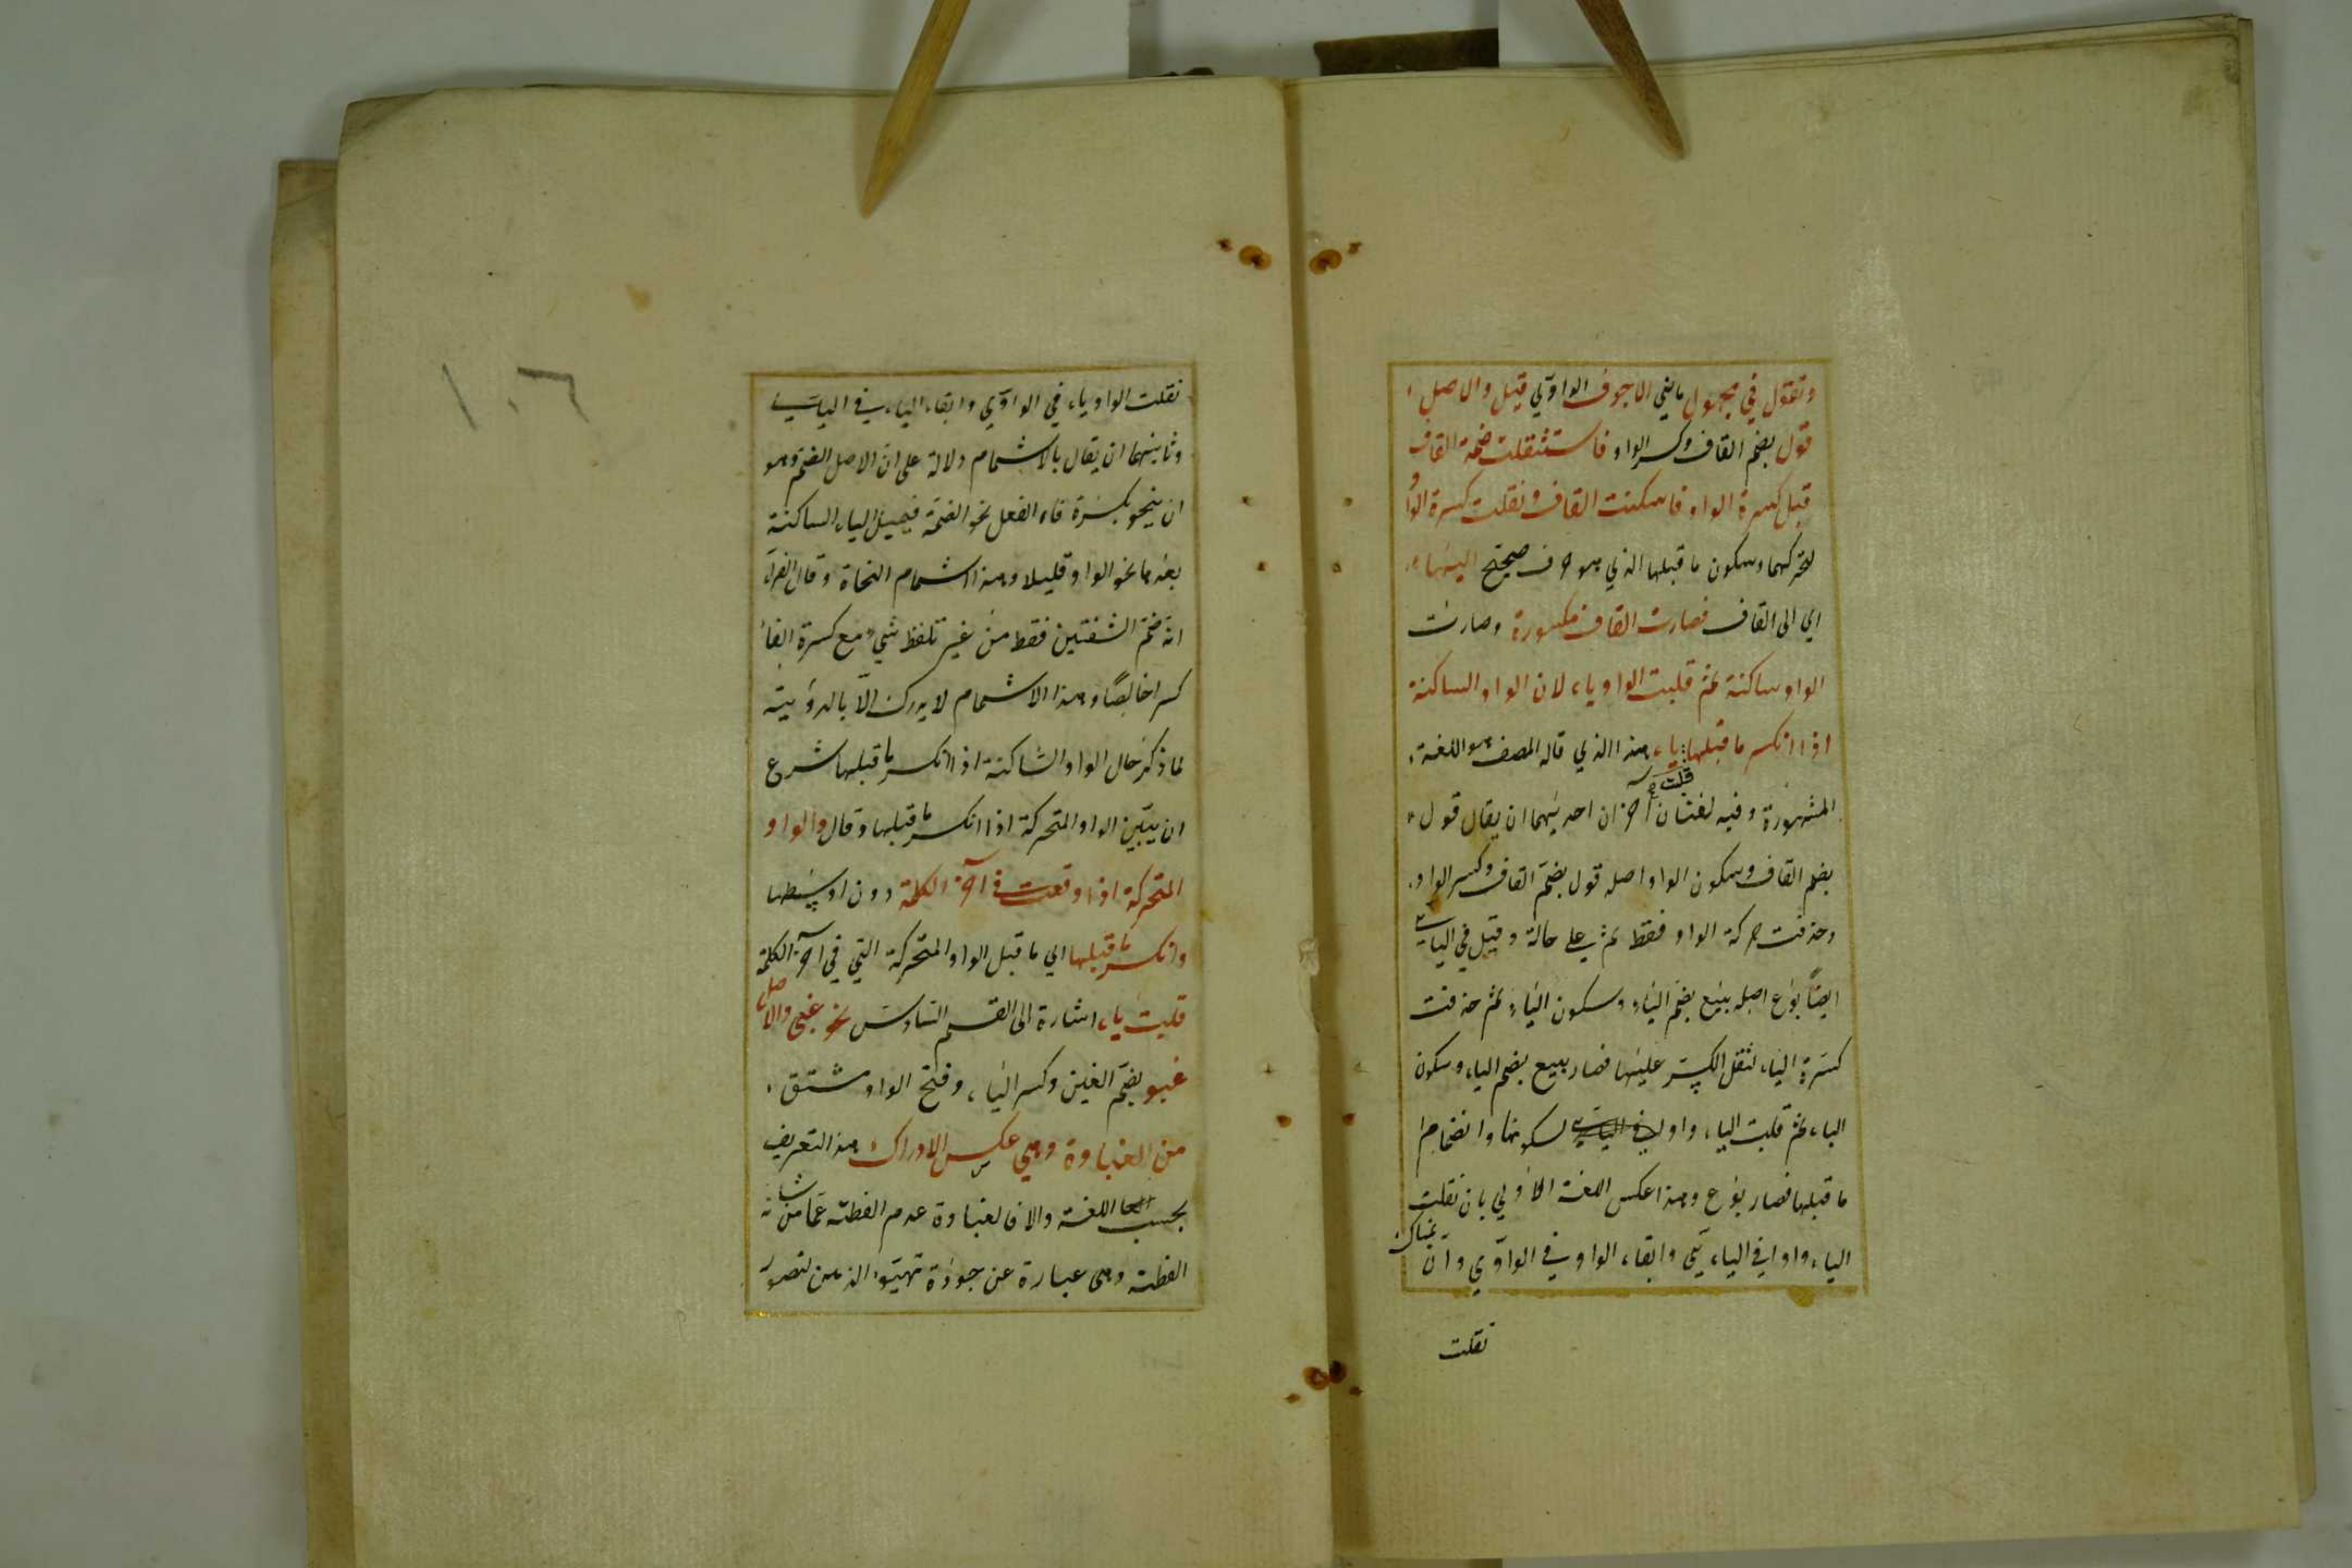 وتقول في مجهول ماضي الاجوف الواوي قيل والاصل
قول بضم القاف وكسر الواو فاستثقلت ضمة القاف
قبل كسرة الواو فاسكنت القاف ونقلت كسرة الواو
لتحركها وسكون ما قبلها الذي هو حرف صحيح اليها
اي الى القاف فصارت القاف مكسورة وصارت
الواو ساكنة ثم قلبت الواو ياء لان الواو الساكنة
اذا انكسر ما قبلها قلبت ياء هذا الذي قاله المصنف هو اللغة
المشهورة وفيه لغتان اخران احديهما ان يقال قول
بضم القاف وسكون الواو اصله قول بضم القاف وكسر الواو
وحذفت حركة الواو فقط ثم على حالة وقيل في اليائي
ايضا بوع اصله بيع بضم الباء وسكون الياء ثم حذفت
كسرة الياء لثقل الكسر عليها فصار بيع بضم الباء وسكون
الياء ثم قلبت الياء واو لسكونها وانضمام
ما قبلها فصار بوع وهذا عكس اللغة الاولى بان نقلت
الياء واوا في اليائي وابقاء الواو في الواوي وان هناك
نقلت
١٠٦
نقلت الواو ياء في الواوي وابقاء الياء في اليائي
وثانيهما ان يقال بالاشمام دلالة على ان الاصل الضم وهو
ان ينحو بكسرة فاء الفعل نحو الضمة فيميل الياء الساكنة
بعدها نحو الواو قليلا وهذا اشمام النحاة وقال الفراء
انه ضم الشفتين فقط من غير تلفظ شيء مع كسرة الفاء
كسرا خالصا وهذا الاشمام لا يدرك الا بالرؤيتة
لما ذكر حال الواو الساكنة اذا انكسر ما قبلها شرع
ان يبين الواو المتحركة اذا انكسر ما قبلها وقال والواو
المتحركة اذا وقعت في اخر الكلمة دون اوسطها
وانكسر ما قبلها اي ما قبل الواو المتحركة التي في اخر الكلمة
قلبت ياء اشارة الى القسم السادس نحو غبي والاصل
غبو بضم الغين وكسر الباء وفتح الواو مشتق
من الغباوة وهي عكس الادراك هذا التعريف
بحسب اللغة والا فالغباوة عدم الفطنة عما من شانه
الفطنة وهي عبارة عن جودة تهيؤ الذهن لتصور